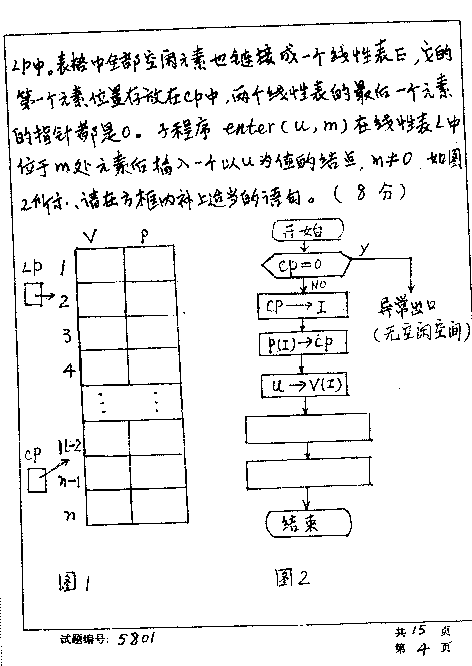 Lp中。表格中全部空闲元素也链接成一个线性表E,它的
第一个元素位置存放在cp中,两个线性表的最后一个元素
的指针都是0。子程序 enter(u,m)在线性表L中
位于m处元素后插入一个以u为值的结点, m≠0 如图
2所示、请在方框内补上适当的语句。(8分)
V P
Lp
1
2
3
4
⋮ ⋮
cp
n-2
n-1
n
图1
开始
cp=0
Y
NO
异常出口
(无空闲空间)
CP→I
P(I)→cp
u→V(I)
结束
图2
试题编号: 5801
共15页
第4页